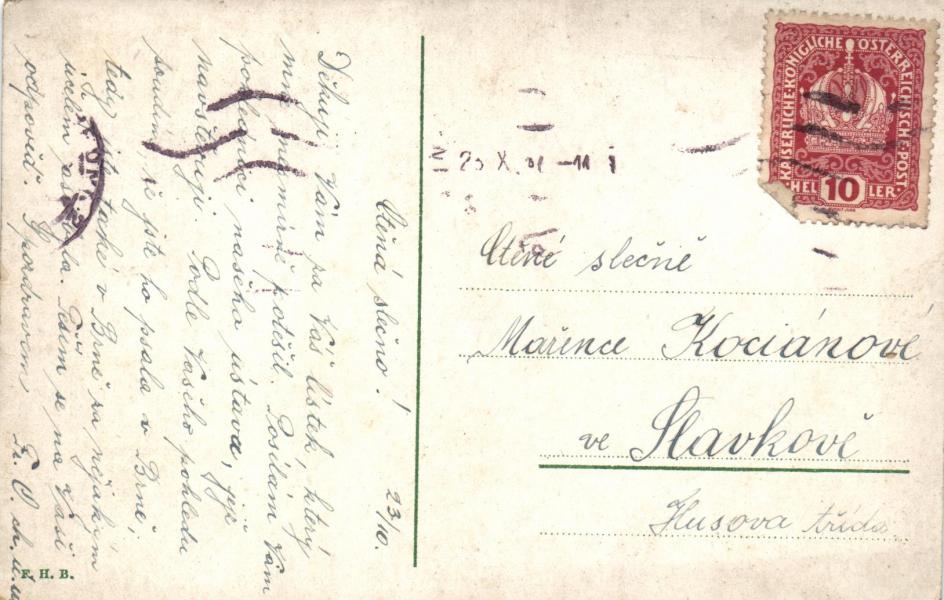 Ctěná slečno! 23/10.
Děkuji Vám za Váš lístek, který
mne potěšil. Posílám Vám
pohlednici našeho ústavu, jejž
navštěvuji. Podle Vašeho pohledu
soudím, že jste ho psala v Brně,
tedy jste také v Brně za nějakým
účelem Těším se na Vaši
odpověď. S pozdravem
F. H. B.
23 X. -11
KAISERLICHE KÖNIGLICHE ÖSTERREICHISCHE POST
HEL 10 LER
Ctěné slečně
Mařence Kociánové
ve Slavkově
Husova třída